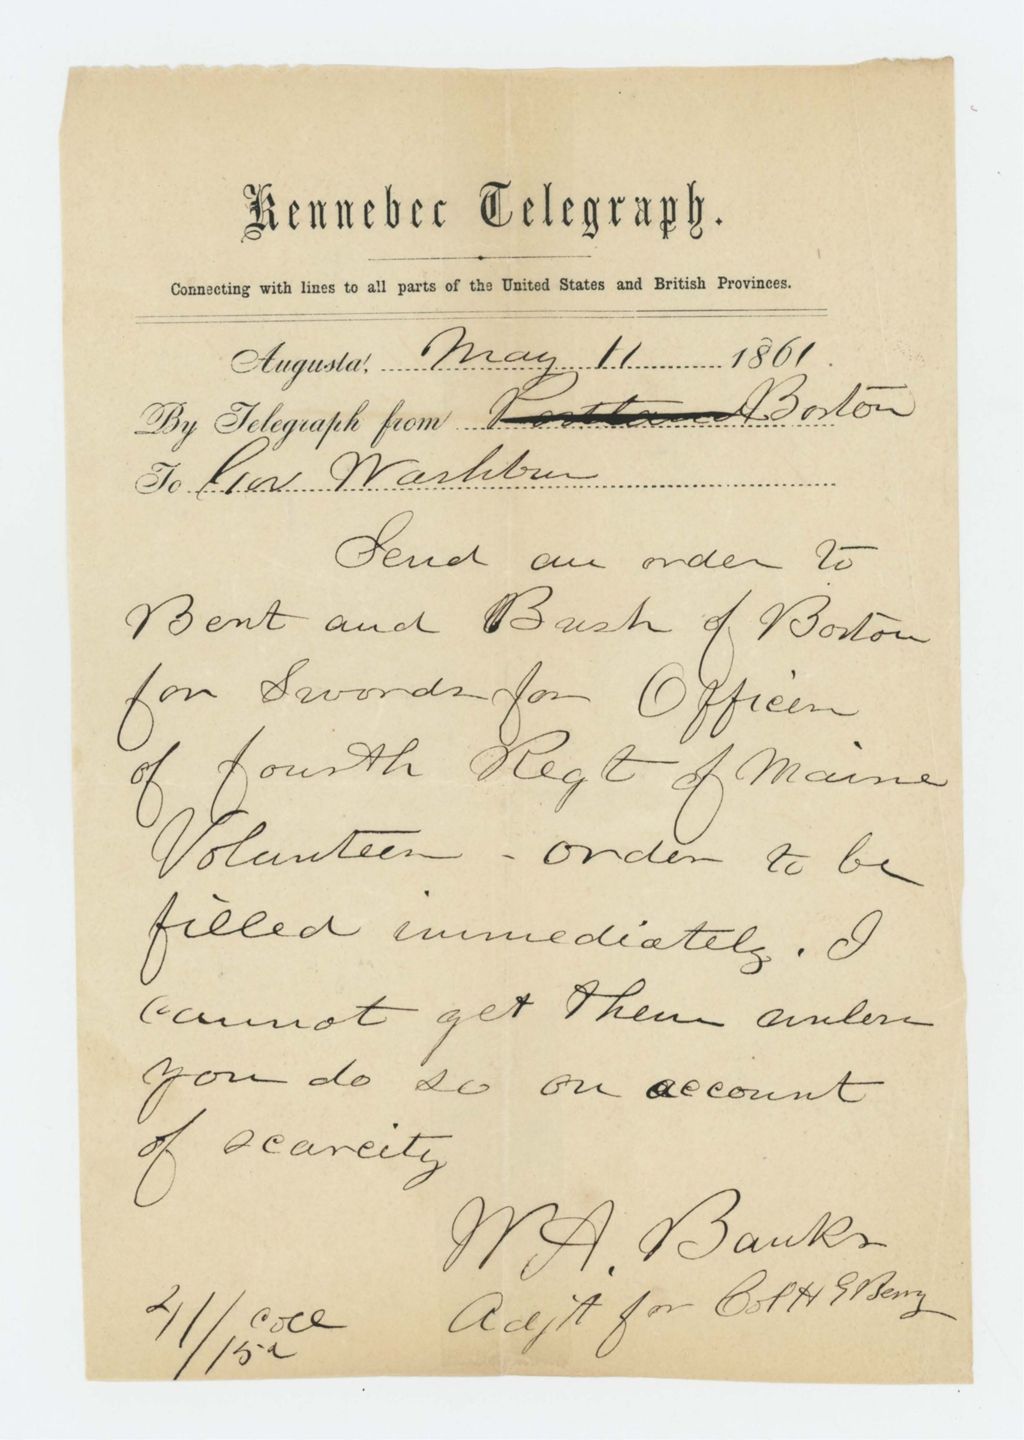 Kennebec Telegraph.
Connecting with lines to all parts of the United States and British Provinces.
Augusta, May 11 1861.
By Telegraph from Portland Boston
To Gov Washburn
Send an order to
Bent and Bush of Boston
for Swords for Officers
of fourth Regt of Maine
Volunteers - order to be
filled immediately. I
cannot get them unless
you do so on account
of scarcity
W A. Banks
Adjt for Col H G Berry
41/ coll
/152